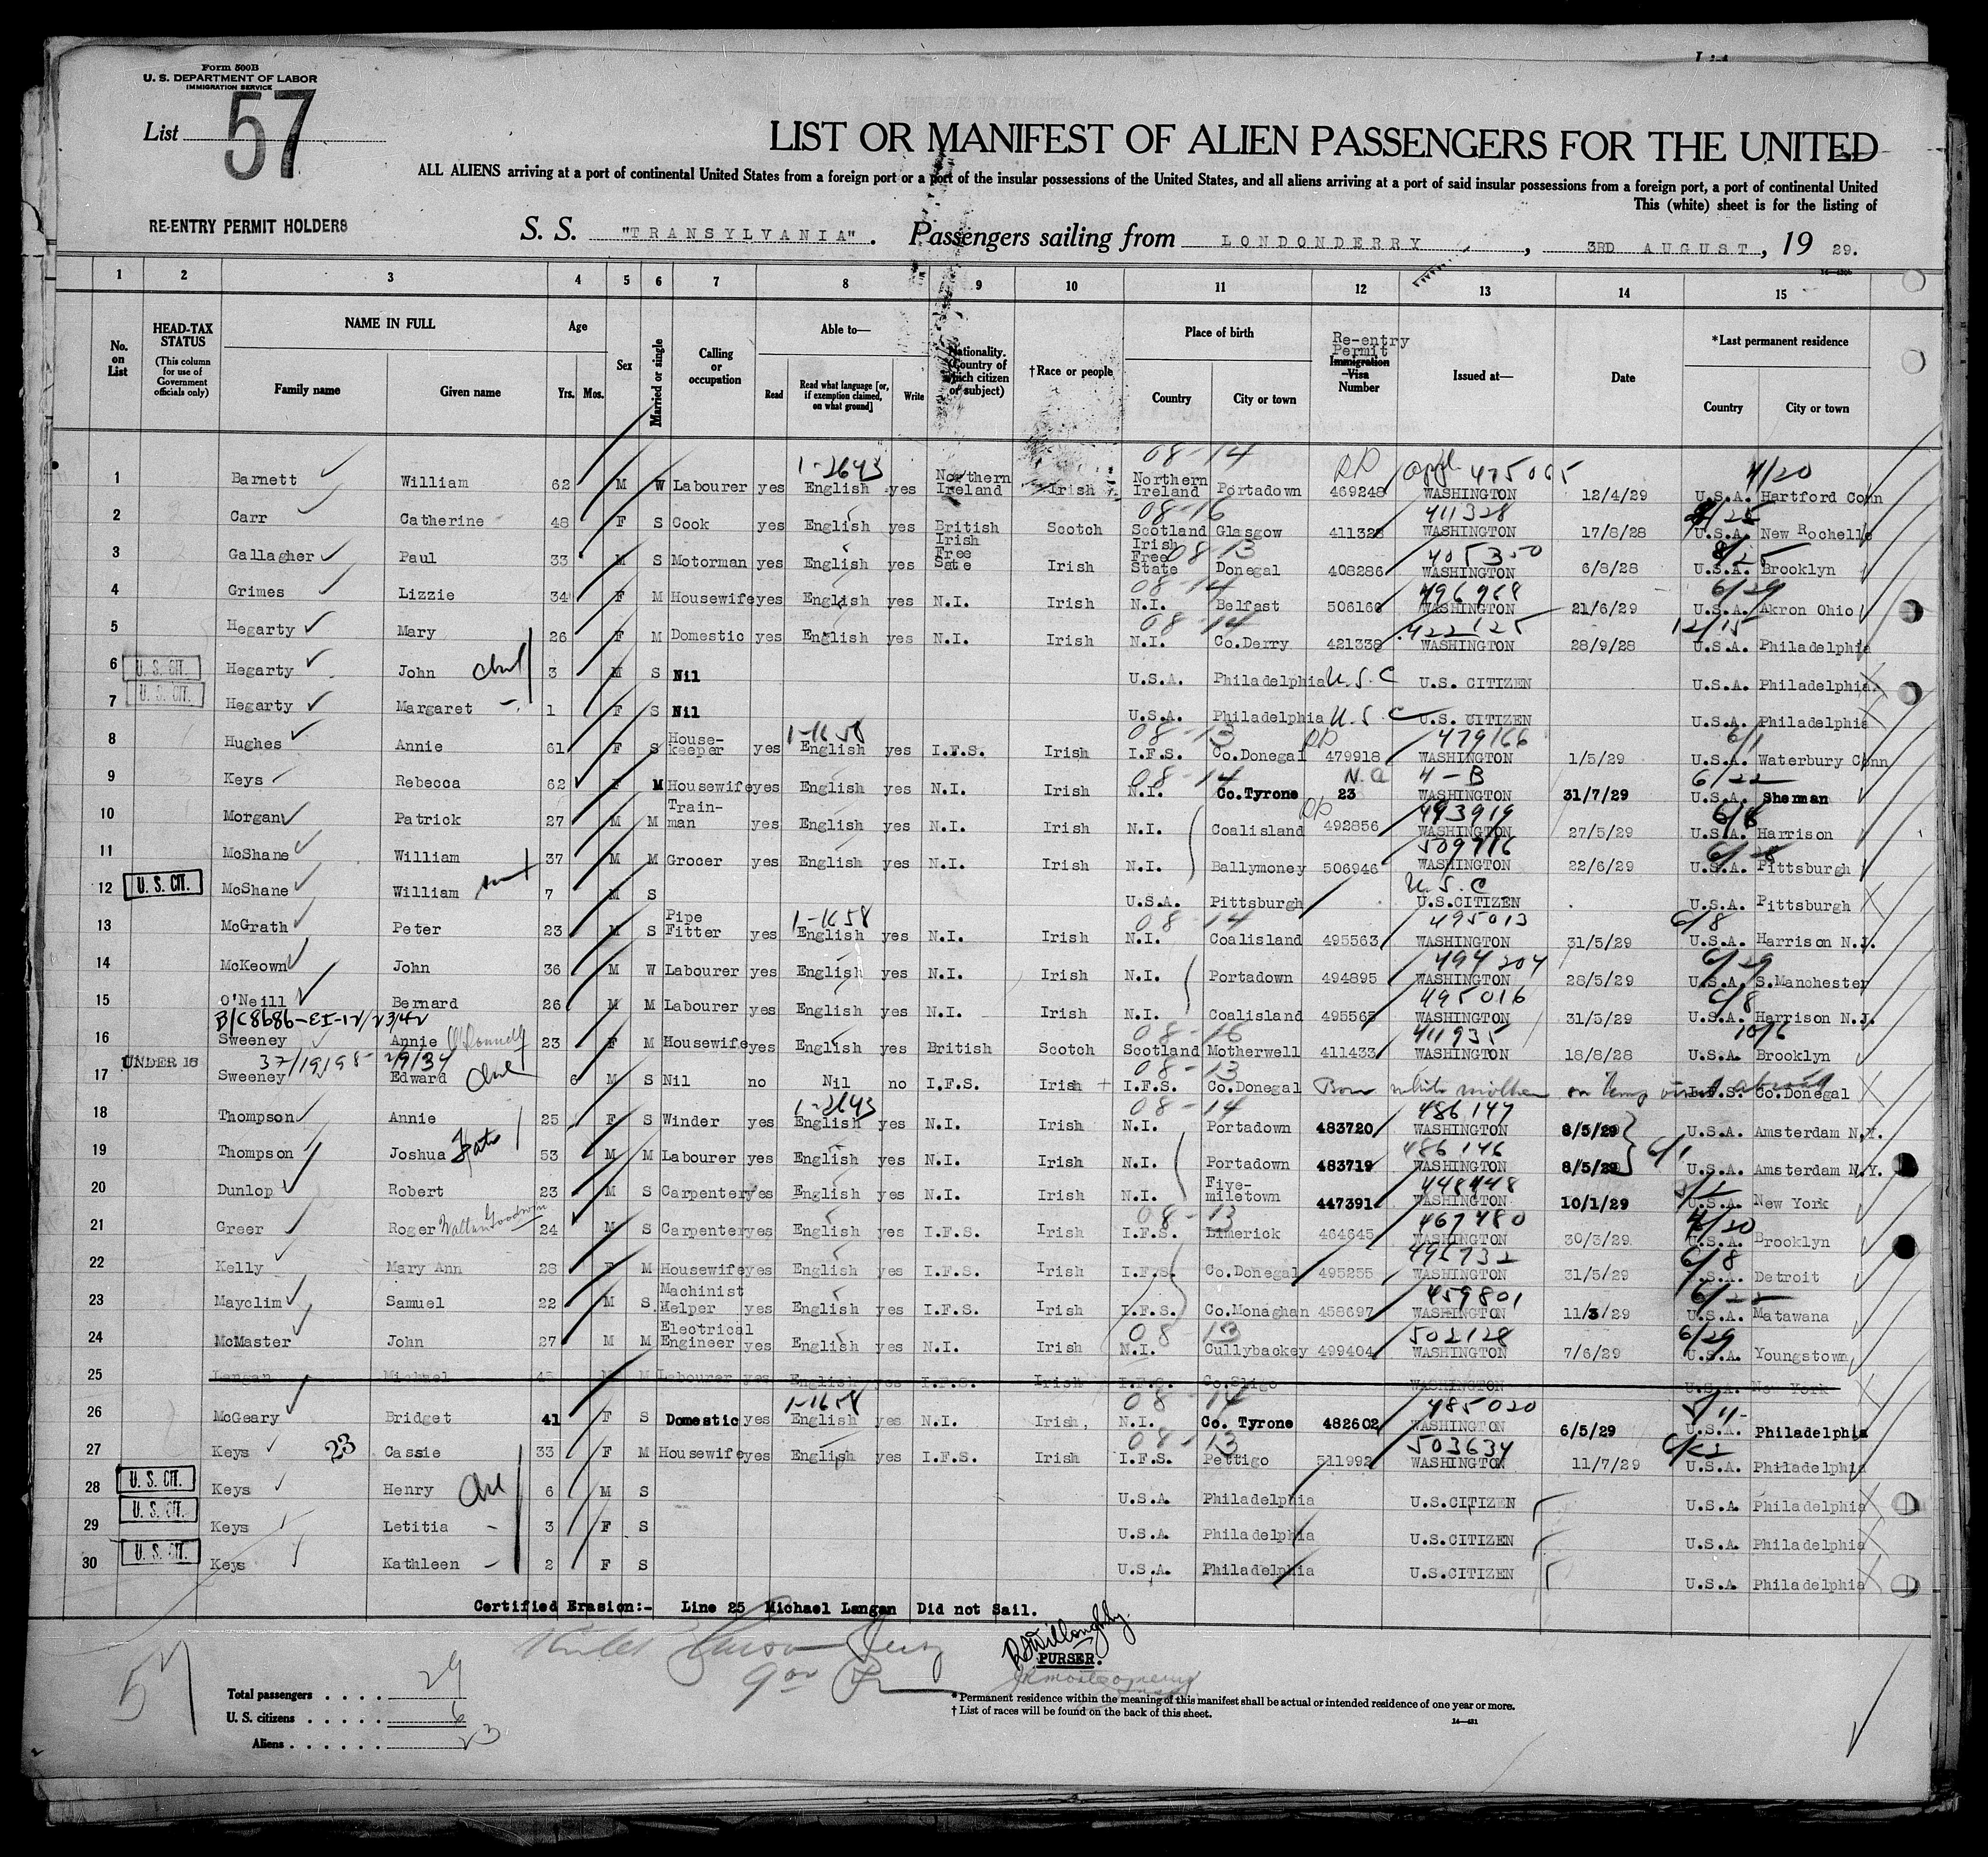 Form 500B
U. S. DEPARTMENT OF LABOR
IMMIGRATION SERVICE
List 57
LIST OR MANIFEST OF ALIEN PASSENGERS FOR THE UNITED
ALL ALIENS arriving at a port of continental United States from a foreign port or a port of the insular possessions of the United States, and all aliens arriving at a port of said insular possessions from a foreign port, a port of continental United
This (white) sheet is for the listing of
RE-ENTRY PERMIT HOLDERS
S. S. "TRANSYLVANIA". Passengers sailing from LONDONDERRY, 3RD AUGUST, 19 29.
1 2 3 4 5 6 7 8 9 10 11 12 13 14 15
No. on List
HEAD-TAX STATUS (This column for use of Government officials only)
NAME IN FULL Family name Given name
Age Yrs. Mos.
Sex
Married or single
Calling or occupation
Able to— Read Read what language [or, if exemption claimed, on what ground] Write
Nationality. (Country of which citizen or subject)
†Race or people
Place of birth Country City or town
Re-entry Permit Immigration Visa Number
Issued at—
Date
*Last permanent residence Country City or town
1-2643 08-14 475065 4/20
1 Barnett William 62 M W Labourer yes English yes Northern Ireland Irish Northern Ireland Portadown 469248 WASHINGTON 12/4/29 U.S.A. Hartford Conn
08-16 411328
2 Carr Catherine 48 F S Cook yes English yes British Scotch Scotland Glasgow 411328 WASHINGTON 17/8/28 U.S.A. New Rochelle
08-13 405350 8/25
3 Gallagher Paul 33 M S Motorman yes English yes Irish Free Sate Irish Irish Free State Donegal 408286 WASHINGTON 6/8/28 U.S.A. Brooklyn
08-14 496968 6/29
4 Grimes Lizzie 34 F M Housewife yes English yes N.I. Irish N.I. Belfast 506160 WASHINGTON 21/6/29 U.S.A. Akron Ohio
08-14 422125 12/15
5 Hegarty Mary 26 F M Domestic yes English yes N.I. Irish N.I. Co.Derry 421338 WASHINGTON 28/9/28 U.S.A. Philadelphia
6 U. S. CIT. Hegarty John 3 M S Nil U.S.A. Philadelphia U.S.C U.S. CITIZEN U.S.A. Philadelphia
7 U. S. CIT. Hegarty Margaret 1 F S Nil U.S.A. Philadelphia U.S.C U.S. CITIZEN U.S.A. Philadelphia
1-1658 08-13 479166 6/1
8 Hughes Annie 61 F S Housekeeper yes English yes I.F.S. Irish I.F.S. Co.Donegal 479918 WASHINGTON 1/5/29 U.S.A. Waterbury Conn
08-14 4-B 6/22
9 Keys Rebecca 62 F M Housewife yes English yes N.I. Irish N.I. Co.Tyrone 23 WASHINGTON 31/7/29 U.S.A. Sherman
493919 6/8
10 Morgan Patrick 27 M M Train-man yes English yes N.I. Irish N.I. Coalisland 492856 WASHINGTON 27/5/29 U.S.A. Harrison
11 McShane William 37 M M Grocer yes English yes N.I. Irish N.I. Ballymoney 506946 WASHINGTON 22/6/29 U.S.A. Pittsburgh
12 U. S. CIT. McShane William 7 M S U.S.A. Pittsburgh U.S.C U.S.CITIZEN U.S.A. Pittsburgh
1-1658 08-14 495013 6/8
13 McGrath Peter 23 M S Pipe Fitter yes English yes N.I. Irish N.I. Coalisland 495563 WASHINGTON 31/5/29 U.S.A. Harrison N.J.
494204 6/29
14 McKeown John 36 M W Labourer yes English yes N.I. Irish N.I. Portadown 494895 WASHINGTON 28/5/29 U.S.A. S.Manchester
495016 6/8
15 O'Neill Bernard 26 M M Labourer yes English yes N.I. Irish N.I. Coalisland 495565 WASHINGTON 31/5/29 U.S.A. Harrison N.J.
08-16 411935 10/6
16 Sweeney Annie O'Donnell 23 F M Housewife yes English yes British Scotch Scotland Motherwell 411433 WASHINGTON 18/8/28 U.S.A. Brooklyn
UNDER 16 37/19195- 2/9/34 08-13
17 Sweeney Edward 6 M S Nil no Nil no I.F.S. Irish I.F.S. Co.Donegal Born while mother on temp visit abroad I.F.S. Co.Donegal
1-2643 08-14 486147
18 Thompson Annie 25 F S Winder yes English yes N.I. Irish N.I. Portadown 483720 WASHINGTON 8/5/29 U.S.A. Amsterdam N.Y.
486146 6/1
19 Thompson Joshua 53 M M Labourer yes English yes N.I. Irish N.I. Portadown 483719 WASHINGTON 8/5/29 U.S.A. Amsterdam N.Y.
448448
20 Dunlop Robert 23 M S Carpenter yes English yes N.I. Irish N.I. Five-miletown 447391 WASHINGTON 10/1/29 U.S.A. New York
08-13 467480 4/20
21 Greer Roger Walter Goodwin 24 M S Carpenter yes English yes I.F.S. Irish I.F.S. Limerick 464645 WASHINGTON 30/3/29 U.S.A. Brooklyn
496732 6/8
22 Kelly Mary Ann 28 F M Housewife yes English yes I.F.S. Irish I.F.S. Co.Donegal 495255 WASHINGTON 31/5/29 U.S.A. Detroit
459801 6/22
23 Mayclim Samuel 22 M S. Machinist Helper yes English yes I.F.S. Irish I.F.S. Co.Monaghan 458697 WASHINGTON 11/3/29 U.S.A. Matawana
08 13 502128 6/29
24 McMaster John 27 M M Electrical Engineer yes English yes N.I. Irish N.I. Cullybackey 499404 WASHINGTON 7/6/29 U.S.A. Youngstown
25 Langan Michael 45 M M Labourer yes English yes I.F.S. Irish I.F.S. Co.Sligo WASHINGTON U.S.A. New York
1-1658 08 14 485020
26 McGeary Bridget 41 F S Domestic yes English yes N.I. Irish, N.I. Co. Tyrone 482602 WASHINGTON 6/5/29 U.S.A. Philadelphia
08-13 503634
27 Keys 23 Cassie 33 F M Housewife yes English yes I.F.S. Irish I.F.S. Pettigo 511992 WASHINGTON 11/7/29 U.S.A. Philadelphia
28 U. S. CIT. Keys Henry 6 M S U.S.A. Philadelphia U.S.CITIZEN U.S.A. Philadelphia
29 U. S. CIT. Keys Letitia 3 F S U.S.A. Philadelphia U.S.CITIZEN U.S.A. Philadelphia
30 U. S. CIT. Keys Kathleen 2 F S U.S.A. Philadelphia U.S.CITIZEN U.S.A. Philadelphia
Certified Erasion:- Line 25 Michael Langan Did not Sail.
RSWilloughby.
PURSER.
57
Total passengers . . . . 29
U. S. citizens . . . . . 6
Aliens . . . . . . 23
* Permanent residence within the meaning of this manifest shall be actual or intended residence of one year or more.
† List of races will be found on the back of this sheet.
14—431